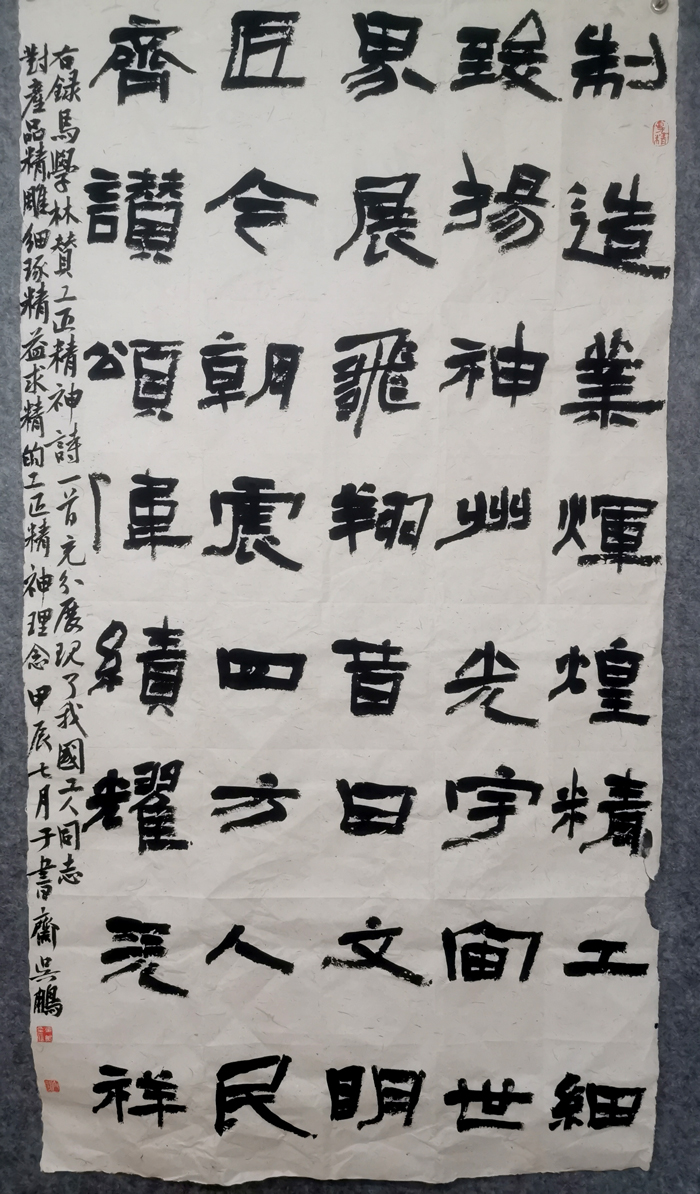 制造業輝煌精工細
致揚神州光宇宙世
界展飛翔昔日文明
匠今朝震四方人民
齊讚頌偉績耀祥
右録馬學林赞工匠精神詩一首充分展现了我國工人同志
對產品精雕細琢精益求精的工匠精神理念甲辰七月于書齋吳鵬